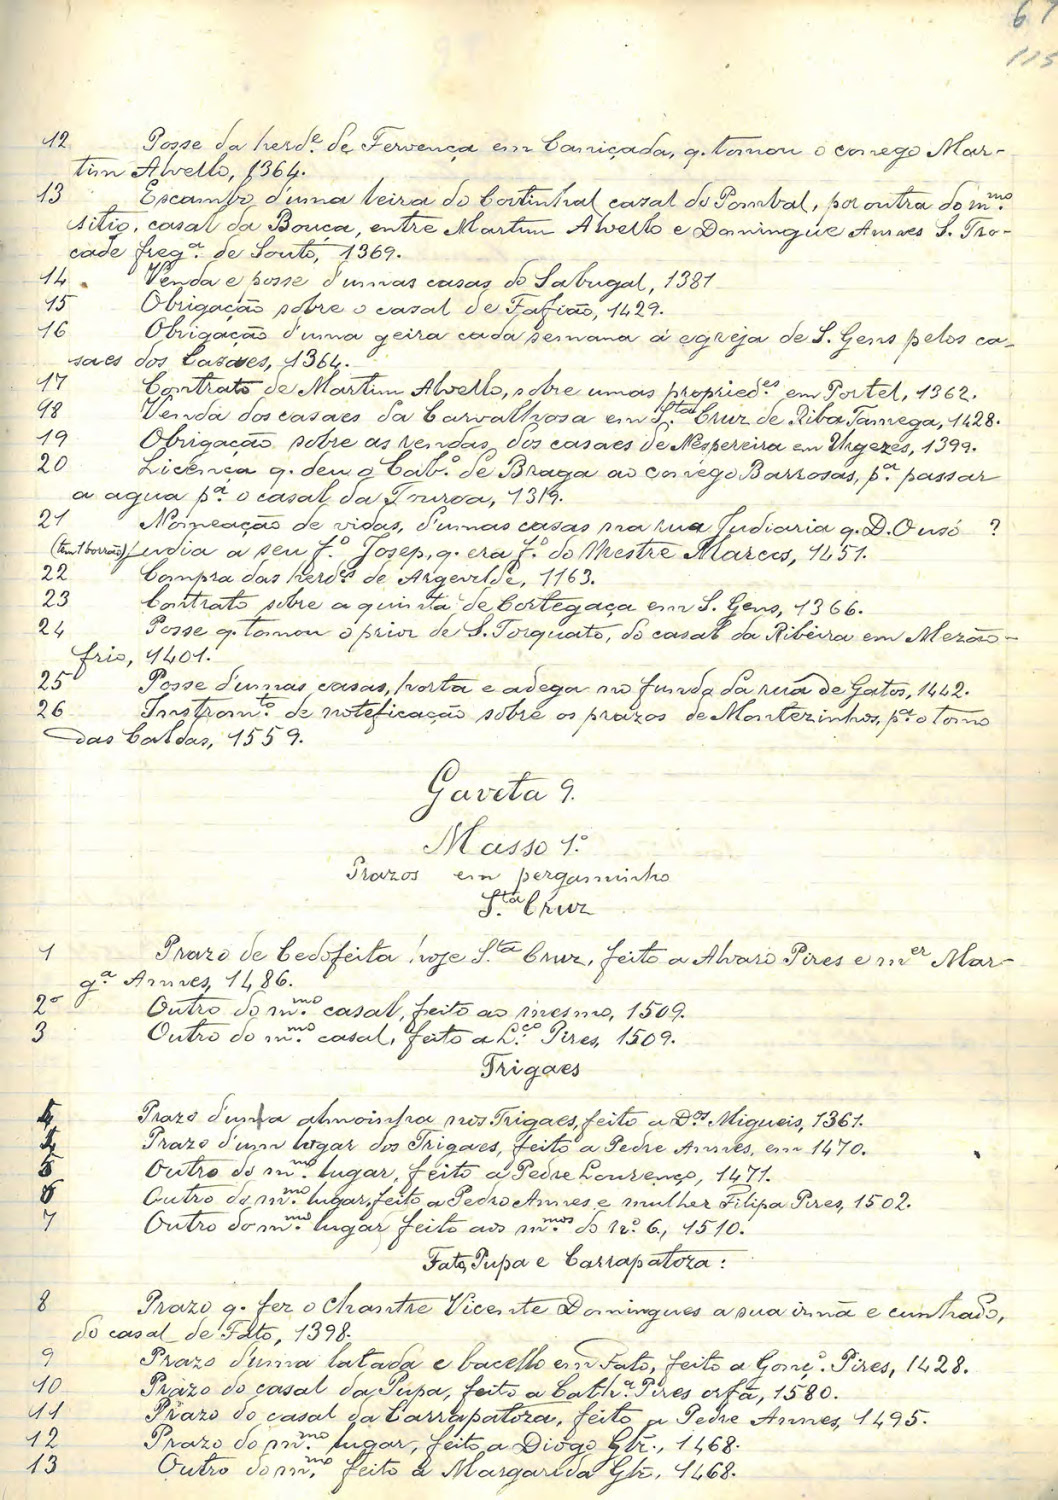 67
115
12 Posse da herd.e de Fervença em Caniçada, q. tomou o conego Mar-
tim Alvello, 1364.
13 Escambo d'uma leira do Cortinhal casal do Pombal, por outra do m.mo
sitio, casal da Bouça, entre Martim Alvello e Domingue Annes S. Tro-
cade freg.a de Souto, 1369.
14 Venda e posse d'umas casas do Sabugal, 1381
15 Obrigação sobre o casal de Fafião, 1429.
16 Obrigação d'uma geira cada semana á egreja de S. Gens pelos ca-
saes dos Casaes, 1364.
17 Contrato de Martim Alvello, sobre umas propried.es em Portel, 1362.
18 Venda dos casaes da Carvalhosa em S.ta Cruz de Riba Tamega, 1428.
19 Obrigação sobre as rendas dos casaes de Nespereira em Urgezes, 1399.
20 Licença q. deu o Cab.o de Braga ao conego Barrosas, p.a passar
a agua p.a o casal da Touroa, 1319.
21 Nomeação de vidas, d'umas casas na rua Judiaria q. D. Ousó ?
(tem 1 borrão) judia a seu f.o Josep, q. era f.o do Mestre Marcos, 1451.
22 Compra das herd.es de Argevilde, 1163.
23 Contrato sobre a quinta de Cortegaça em S. Gens, 1366.
24 Posse q. tomou o prior de S. Torquato, do casal da Ribeira em Mezão-
frio, 1401.
25 Posse d'umas casas, horta e adega no fundo da rua de Gatos, 1442.
26 Instrom.to de noteficação sobre os prazos de Montezinhos, p.a o tomo
das Caldas, 1559.
Gaveta 9.
Masso 1.o
Prazos em pergaminho
S.ta Cruz
1 Prazo de Cedofeita hoje S.ta Cruz, feito a Alvaro Pires e m.er Mar-
g.a Annes, 1486.
2 Outro do m.mo casal, feito ao mesmo, 1509.
3 Outro do m.mo casal, feito a L.ço Pires, 1509.
Trigaes
4 Prazo d'uma almoinha nos Trigaes, feito a D.os Migueis, 1361.
Prazo d'um logar dos Trigaes, feito a Pedre Annes, em 1470.
5 Outro do m.mo lugar, feito a Pedre Lourenço, 1471.
6 Outro do m.mo lugar, feito a Pedro Annes e mulher Filipa Pires, 1502.
7 Outro do m.mo lugar feito aos m.mos do n.o 6., 1510.
Fato, Pupa e Carrapatoza:
8 Prazo q. fez o Chantre Vicente Domingues a sua irmã e cunhado,
do casal de Fato, 1398.
9 Prazo d'uma latada e bacello em Fato, feito a Gonç.o Pires, 1428.
10 Prazo do casal da Pupa, feito a Cath.a Pires orfã, 1580.
11 Prazo do casal da Carrapatoza, feito a Pedre Annes, 1495.
12 Prazo do m.mo lugar, feito a Diogo Glz., 1468.
13 Outro do m.mo feito a Margarida Glz., 1468.